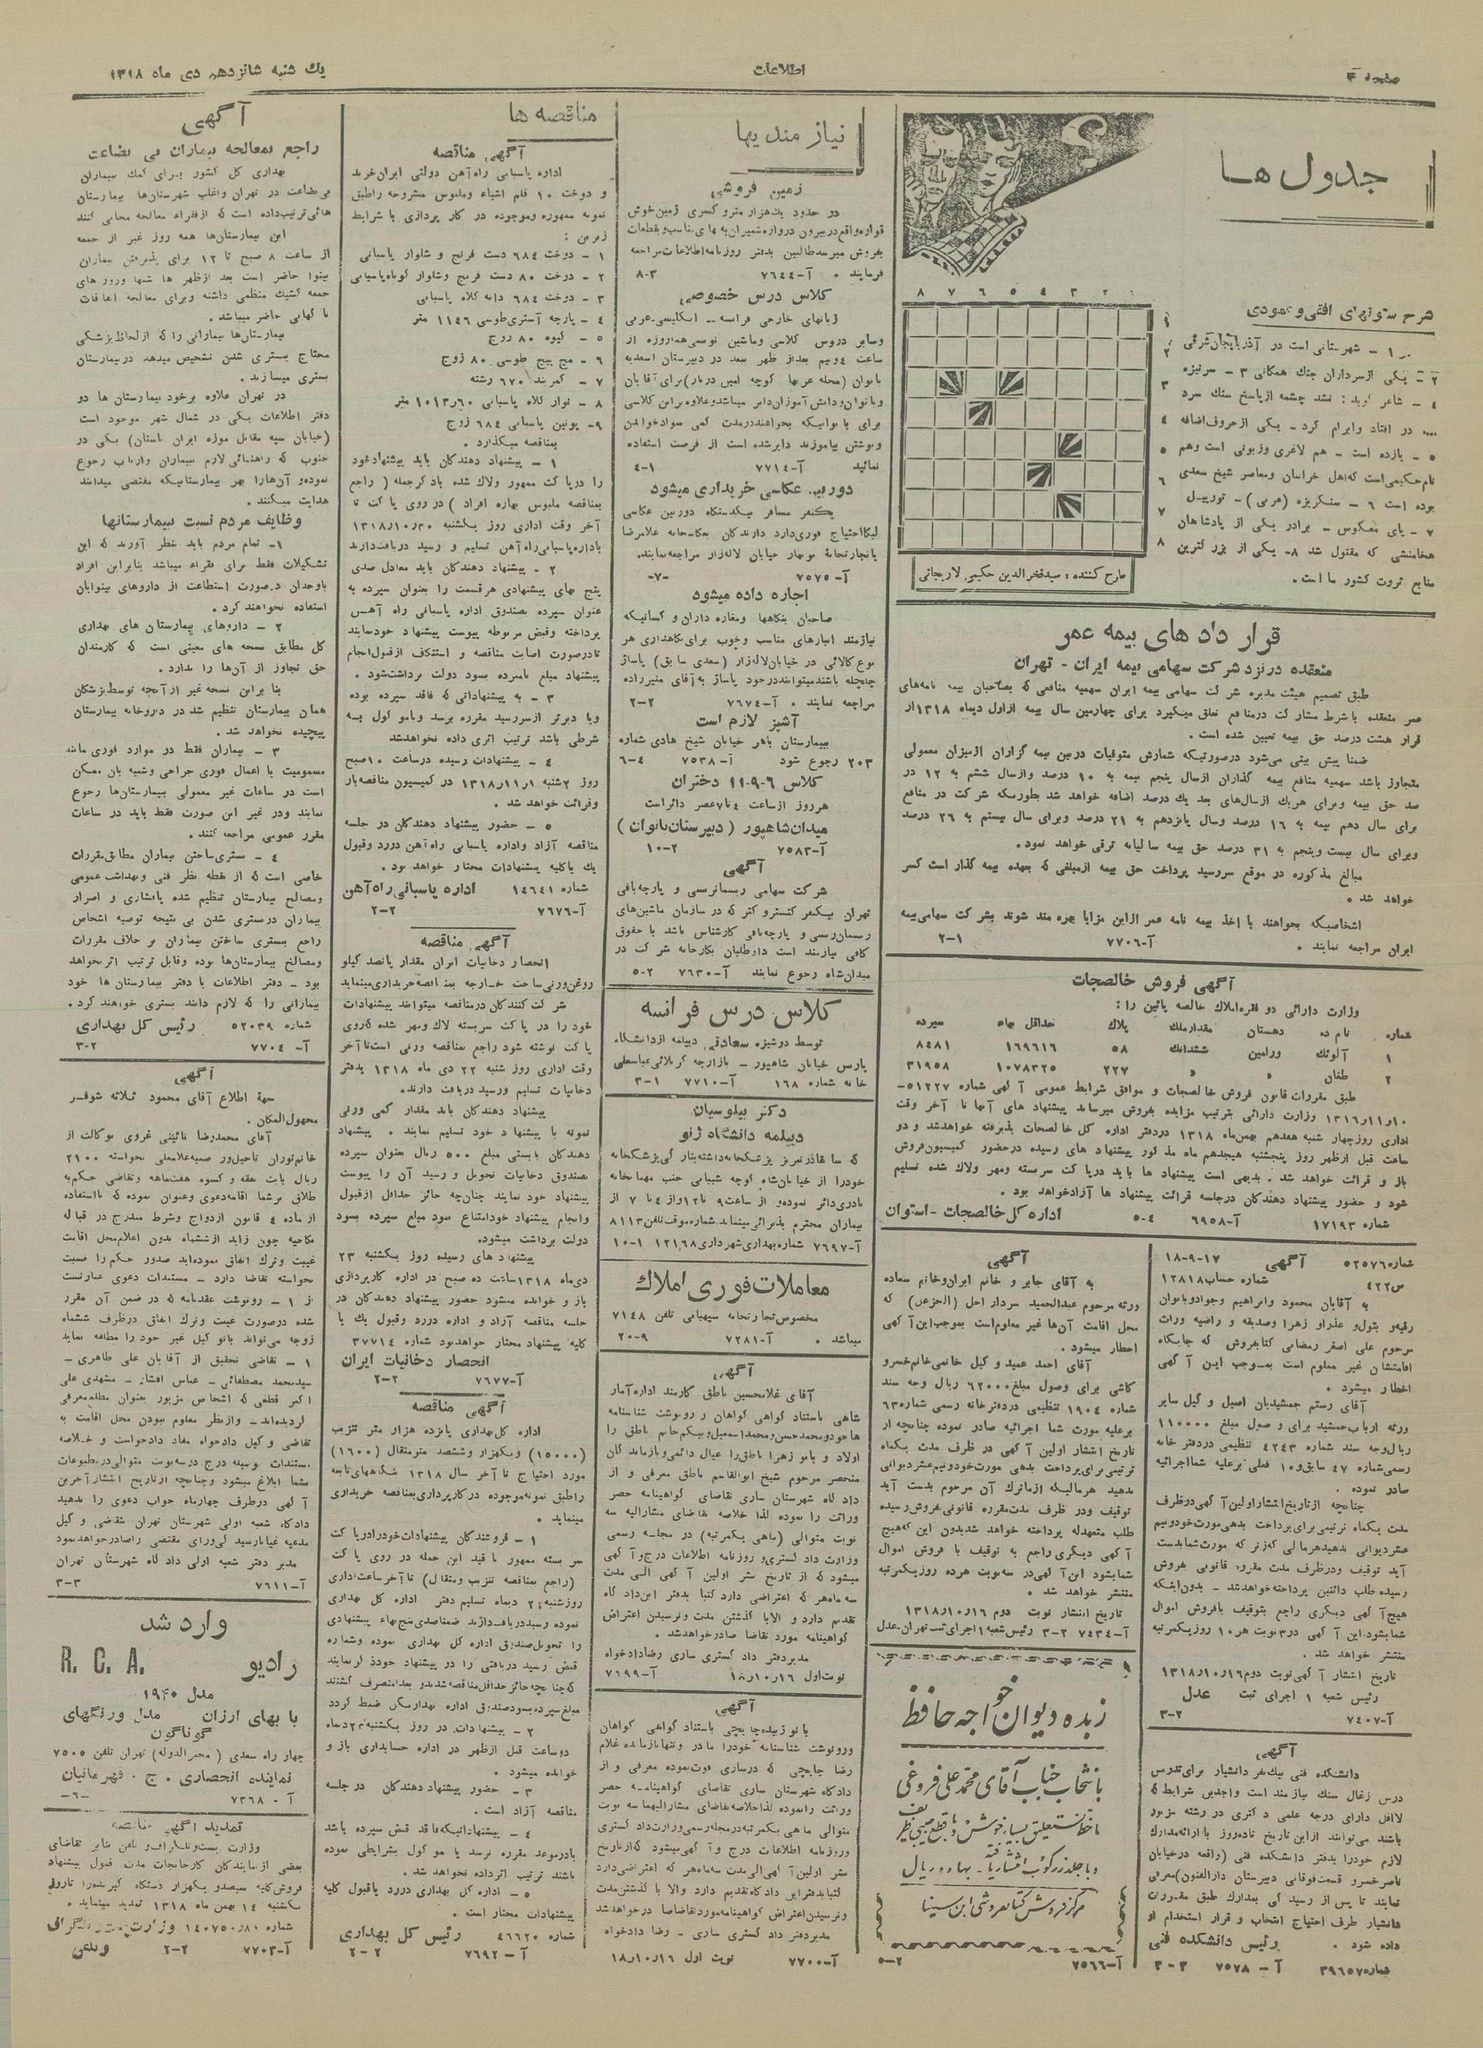 صفحه ۴
اطلاعات
یك شنبه شانزدهم دی ماه ۱۳۱۸
جدول ها
شرح ستونهای افقی و عمودی
۱ - شهرستانی است در آذربایجان شرقی
۲ - یکی از سرداران جنك همگانی ۳ - سرنیزه
۵ - یازده است - هم لاغری وزبونی است وهم
نام حکیمی است که اهل خراسان ومعاصر شیخ سعدی
بوده است ۶ - سنگریزه (عربی) - توربیل
۷ - پای معکوس - برادر یکی از پادشاهان
هخامنشی که مقتول شد ۸- یکی از بزرگترین
منابع ثروت کشور ما است .
۱ ۲ ۳ ۴ ۵ ۶ ۷ ۸
طرح کننده : سیدفخرالدین حکیمی لاریجانی
قرار داد های بیمه عمر
منعقده در نزد شرکت سهامی بیمه ایران - تهران
طبق تصمیم هیئت مدیره شرکت سهامی بیمه ایران سهمیه منافعی که بصاحبان بیمه نامه‌های
عمر منعقده با شرط مشارکت در منافع تعلق میگیرد برای چهارمین سال بیمه از اول دیماه ۱۳۱۸ از
قرار هشت درصد حق بیمه تعیین شده است .
ضمنا پیش بینی می‌شود درصورتیکه شمارش متوفیات در بین بیمه گزاران از میزان معمولی
متجاوز باشد سهمیه منافع بیمه گذاران از سال پنجم بیمه به ۱۰ درصد واز سال ششم به ۱۲ در
صد حق بیمه وبرای هریك از سال‌های بعد یك درصد اضافه خواهد شد بطوریکه شرکت در منافع
برای سال دهم بیمه به ۱۶ درصد وسال پانزدهم به ۲۱ درصد وبرای سال بیستم به ۲۶ درصد
وبرای سال بیست وپنجم به ۳۱ درصد حق بیمه سالیانه ترقی خواهد نمود .
مبالغ مذکوره در موقع سررسید پرداخت حق بیمه از مبلغی که بعهده بیمه گذار است کسر
خواهد شد .
اشخاصیکه بخواهند با اخذ بیمه نامه عمر از این مزایا بهره مند شوند بشرکت سهامی بیمه
ایران مراجعه نمایند . آ-۷۷۰۶ ۲-۱
آگهی فروش خالصجات
وزارت دارائی دو فقره املاك خالصه پائین را :
شماره نام ده دهستان مقدار ملك پلاك حداقل بهاء سپرده
۱ آلوئك ورامین ششدانك ۵۸ ۱۶۹۶۱۶ ۸۴۸۱
۲ طغان » » ۲۲۷ ۱۰۷۸۳۲۵ ۳۱۹۵۸
طبق مقررات قانون فروش خالصجات و موافق شرایط عمومی آگهی شماره ۵۱۲۲۷-
۱۰ر۱۱ر۱۳۱۶ وزارت دارائی بترتیب مزایده بفروش میرساند پیشنهاد های آنها تا آخر وقت
اداری روز چهار شنبه هفدهم بهمن ماه ۱۳۱۸ در دفتر اداره کل خالصجات پذیرفته خواهد شد و دو
ساعت قبل از ظهر روز پنجشنبه هیجدهم ماه مذکور پیشنهاد های رسیده در حضور کمیسیون فروش
باز و قرائت خواهد شد . بدیهی است پیشنهاد ها باید در پاکت سربسته ومهر ولاك شده تسلیم
شود و حضور پیشنهاد دهندگان در جلسه قرائت پیشنهاد ها آزاد خواهد بود .
شماره ۱۷۱۹۳ آ-۶۹۵۸ ۵-۴ اداره کل خالصجات - استوان
شماره ۵۲۵۷۶ آگهی ۱۷-۹-۱۸
ص ۴۲۲ شماره حساب ۱۲۸۱۸
به آقایان محمود وابراهیم وجواد وبانوان
رقیه و بتول و عذرا و زهرا وصدیقه و راضیه وراث
مرحوم علی اصغر رمضانی کتابفروش که جایگاه
اقامتشان غیر معلوم است بموجب این آگهی
اخطار میشود .
آقای رستم جمشیدیان اصیل و کیل سایر
ورثه ارباب جمشید برای وصول مبلغ ۱۱۰۰۰۰
ریال وجه سند شماره ۴۲۴۳ تنظیمی در دفتر خانه
رسمی شماره ۴۷ سابق و ۱۰ فعلی بر علیه شما اجرائیه
صادر نموده .
چنانچه از تاریخ انتشار اولین آگهی در ظرف
مدت یکماه ترتیبی برای پرداخت بدهی مورث خود و نیم
عشر دیوانی ندهید هر مالی که از ترکه مورث شما بدست
آید توقیف ودر ظرف مدت مقرره قانونی بفروش
رسیده طلب دائنین پرداخته خواهد شد - بدون اینکه
هیچ آگهی دیگری راجع بتوقیف یا فروش اموال
شما بشود این آگهی در ۳ نوبت هر ۱۰ روز یکمرتبه
منتشر خواهد شد .
تاریخ انتشار آگهی نوبت دوم ۱۶ر۱۰ر۱۳۱۸
رئیس شعبه ۱ اجرای ثبت عدل
آ-۷۴۰۷ ۳-۲
آگهی
دانشکده فنی بیك نفر دانشیار برای تدریس
درس زغال سنك نیازمند است واجدین شرایط که
لااقل دارای درجه علمی دکتری در رشته مزبور
باشند می‌توانند از این تاریخ تا ده روز با ارائه مدارك
لازم خود را بدفتر دانشکده فنی (واقعه در خیابان
ناصر خسرو قسمت فوقانی دبیرستان دارالفنون) معرفی
نمایند تا پس از رسیدگی بمدارك طبق مقررات
دانشیار طرف احتیاج انتخاب و قرار استخدام او
داده شود . رئیس دانشکده فنی
شماره ۳۹۶۵۷ آ - ۷۵۷۸ ۳-۲
آگهی
به آقای جابر و خانم ایران وخانم سعاده
ورثه مرحوم عبدالحمید سردار اجل (الخزعل) که
محل اقامت آن‌ها غیر معلوم است بموجب این آگهی
احطار میشود .
آقای احمد عمید و کیل خانمی خانم خسرو
کاشی برای وصول مبلغ ۶۲۰۰۰ ریال وجه سند
شماره ۱۹۰۴ تنظیمی در دفتر خانه رسمی شماره ۶۳
بر علیه مورث شما اجرائیه صادر نموده چنانچه از
تاریخ انتشار اولین آگهی در ظرف مدت یکماه
ترتیبی برای پرداخت بدهی مورث خود و نیم عشر دیوانی
ندهید هر مالیکه از ماترك آن مرحوم بدست آید
توقیف ودر ظرف مدت مقرره قانونی فروش رسیده
طلب متعهدله پرداخته خواهد شد بدون این که هیچ
آگهی دیگری راجع به توقیف یا فروش اموال
شما بشود این آگهی در سه نوبت هر ده روز یکمرتبه
منتشر خواهد شد .
تاریخ انتشار نوبت دوم ۱۶ر۱۰ر۱۳۱۸
آ-۷۴۳۴ ۳-۲ رئیس شعبه ۱ اجرای ثبت تهران-عدل
زبده دیوان خواجه حافظ
بانتخاب جناب آقای محمد علی فروغی
با خط نستعلیق بسیار خوش و با قطع جیبی ظریف
و با جلد زرکوب انتشار یافته - بهاء ده ریال
مرکز فروش کتابفروشی ابن سینا
آ-۷۵۶۶ ۵-۲
نیازمندیها
زمین فروشی
در حدود یك‌هزار متر و کسری زمین خوش
قواره واقع در بیرون دروازه شمیران به بهای مناسب و بقطعات
بفروش میرسد طالبین بدفتر روزنامه اطلاعات مراجعه
فرمایند . آ-۷۶۴۴ ۸-۳
کلاس درس خصوصی
زبانهای خارجی فرانسه - انگلیسی - عربی
وسایر دروس کلاسی وماشین نویسی همه روزه از
ساعت ۴ و نیم بعد از ظهر ببعد در دبیرستان اسعدیه
بانوان (محله عربها کوچه امین دربار) برای آقایان
و بانوان و دانش آموزان دایر میباشد و علاوه بر این کلاسی
برای بانوانیکه بخواهند در مدت کمی سواد خواندن
ونوشتن بیاموزند دایر شده است از فرصت استفاده
نمائید آ-۷۷۱۴ ۴-۱
دوربین عکاسی خریداری میشود
یکنفر مسافر بیکدستگاه دوربین عکاسی
لیکا احتیاج فوری دارد دارندگان بعکاسخانه غلامرضا
یا تجارتخانه نوبهار خیابان لاله زار مراجعه نمایند.
آ-۷۵۷۵ -۷-
اجاره داده میشود
صاحبان بنگاهها ومغازه داران و کسانیکه
نیازمند انبارهای مناسب وخوب برای نگاهداری هر
نوع کالائی در خیابان لاله زار (سعدی سابق) پاساژ
چلچله باشند میتوانند در خود پاساژ به آقای منیرزاده
مراجعه نمایند . آ-۷۶۷۴ ۲-۲
آشپز لازم است
بیمارستان باهر خیابان شیخ هادی شماره
۲۰۳ رجوع شود آ-۷۵۳۸ ۶-۴
کلاس ۶-۹-۱۱ دختران
هر روز از ساعت ۴ تا ۷ عصر دائر است
میدان شاهپور (دبیرستان بانوان)
آ-۷۵۸۳ ۱۰-۲
آگهی
شرکت سهامی ریسمان‌رسی و پارچه بافی
تهران بیکنفر کنسترو کتر که در سازمان ماشین‌های
ریسمان رسی و پارچه بافی کارشناس باشد با حقوق
کافی نیازمند است داوطلبان بکارخانه شرکت در
میدان شاه رجوع نمایند آ-۷۶۳۰ ۵-۲
کلاس درس فرانسه
توسط دوشیزه سعادتی دیپلمه از دانشگاه
پاریس خیابان شاهپور - بازارچه کربلائی عباسعلی
خانه شماره ۱۶۸ آ-۷۷۱۰ ۳-۱
دکتر بیلوسیان
دیپلمه دانشگاه ژنو
که سابقا در تبریز پزشکخانه داشته بتازگی پزشکخانه
خود را در خیابان شاه کوچه شیبانی جنب مهمانخانه
نادری دائر نموده و از ساعت ۹ تا ۱۲ و از ۴ تا ۷ از
بیماران محترم پذیرائی مینماید شماره موقت تلفن ۸۱۱۳
آ-۷۶۹۷ شماره بهداری شهرداری ۱۲۱۶۸ ۱۰-۱
معاملات فوری املاك
مخصوص تجارتخانه سیهیامی تلفن ۷۱۴۸
میباشد . آ-۷۲۸۱ ۲۰-۹
آگهی
آقای غلامحسین ناطق کارمند اداره آمار
شاهی باستناد گواهی گواهان و رونوشت شناسنامه
ها خود و محمد حسن و محمد اسمعیل و بیگم خانم ناطق را
اولاد و بانو زهرا ناطق را عیال دائمی و بازماندگان
منحصر مرحوم شیخ ابوالقاسم ناطق معرفی و از
دادگاه شهرستان ساری تقاضای گواهینامه حصر
وراثت را نموده لذا خلاصه تقاضای مشارالیه سه
نوبت متوالی (ماهی یکمرتبه) در مجله رسمی
وزارت دادگستری و روزنامه اطلاعات درج و آگهی
میشود که از تاریخ نشر اولین آگهی الی مدت
سه ماه هر که اعتراضی دارد کتبا بدفتر این دادگاه
تقدیم دارد و الا با گذشتن مدت و نرسیدن اعتراض
گواهینامه مورد تقاضا صادر خواهد شد .
مدیر دفتر دادگستری ساری رضا دادخواه
نوبت اول ۱۶ر۱۰ر۱۸ آ-۷۶۹۹
آگهی
بانو زبیده چایچی باستناد گواهی گواهان
ورونوشت شناسنامه خود را مادر و تنها بازمانده غلام
رضا چایچی که در ساری فوت نموده معرفی و از
دادگاه شهرستان ساری تقاضای گواهینامه حصر
وراثت را نموده لذا خلاصه تقاضای مشارالیها سه نوبت
متوالی ماهی یکمرتبه در مجله رسمی وزارت دادگستری
وروزنامه اطلاعات درج و آگهی میشود که از تاریخ
نشر اولین آگهی الی مدت سه ماه هر که اعتراضی دارد
کتبا بدفتر این دادگاه تقدیم دارد والا با گذشتن مدت
ونرسیدن اعتراض گواهینامه مورد تقاضا صادر خواهد شد
مدیر دفتر دادگستری ساری - رضا دادخواه
آ-۷۷۰۰ نوبت اول ۱۶ر۱۰ر۱۸
مناقصه ها
آگهی مناقصه
اداره پاسبانی راه آهن دولتی ایران خرید
و دوخت ۱۰ قلم اشیاء وملبوس مشروحه را طبق
نمونه ممهوره وموجوده در کار پردازی با شرایط
زیرین :
۱ - دوخت ۶۸۴ دست فرنج و شلوار پاسبانی
۲ - دوخت ۸۰ دست فرنج وشلوار کوتاه پاسبانی
۳ - دوخت ۶۸۴ دانه کلاه پاسبانی
۴ - پارچه آستری طوسی ۱۱۴۶ متر
۵ - گیوه ۸۰ زوج
۶ - مچ پیچ طوسی ۸۰ زوج
۷ - کمربند ۶۷۰ رشته
۸ - نوار کلاه پاسبانی ۶۰ر۱۰۱۳ متر
۹- پوتین پاسبانی ۶۸۴ زوج
بمناقصه میگذارد .
۱ - پیشنهاد دهندگان باید پیشنهاد خود
را در پاکت ممهور ولاك شده با ذکر جمله ( راجع
بمناقصه ملبوس بهاره افراد ) در روی پاکت تا
آخر وقت اداری روز یکشنبه ۳۰ر۱۰ر۱۳۱۸
باداره پاسبانی راه آهن تسلیم و رسید دریافت دارند
۲ - پیشنهاد دهندگان باید معادل صدی
پنج بهای پیشنهادی هر قسمت را بعنوان سپرده به
عنوان سپرده بصندوق اداره پاسبانی راه آهن
پرداخته وقبض مربوطه پیوست پیشنهاد خود نمایند
تا در صورت اصابت مناقصه و استنکاف از قبول انجام
پیشنهاد مبلغ نامبرده بسود دولت برداشت شود .
۳ - به پیشنهاداتی که فاقد سپرده بوده
ویا دیرتر از سررسید مقرره برسد ویا موکول به
شرطی باشد ترتیب اثری داده نخواهد شد
۴ - پیشنهادات رسیده در ساعت ۱۰ صبح
روز ۲ شنبه ۱ر۱۱ر۱۳۱۸ در کمیسیون مناقصه باز
وقرائت خواهد شد .
۵ - حضور پیشنهاد دهندگان در جلسه
مناقصه آزاد واداره پاسبانی راه آهن در رد وقبول
یك یا کلیه پیشنهادات مختار خواهد بود .
شماره ۱۴۶۴۱ اداره پاسبانی راه آهن
آ-۷۶۷۶ ۲-۲
آگهی مناقصه
انحصار دخانیات ایران مقدار پانصد کیلو
روغن ورنی ساخت خارجه بمناقصه خریداری مینماید
شرکت کنندگان در مناقصه میتوانند پیشنهادات
خود را در پاکت سربسته لاك ومهر شده که روی
پاکت نوشته شود راجع بمناقصه ورنی است تا آخر
وقت اداری روز شنبه ۲۲ دی ماه ۱۳۱۸ بدفتر
دخانیات تسلیم ورسید دریافت دارند .
پیشنهاد دهندگان باید مقدار کمی ورنی
نمونه با پیشنهاد خود تسلیم نمایند . پیشنهاد
دهندگان بایستی مبلغ ۵۰۰ ریال بعنوان سپرده
بصندوق دخانیات تحویل و رسید آن را پیوست
پیشنهاد خود نمایند چنان‌چه حائز حداقل از قبول
وانجام پیشنهاد خود امتناع نمود مبلغ سپرده بسود
دولت برداشت میشود .
پیشنهاد های رسیده روز یکشنبه ۲۳
دی ماه ۱۳۱۸ ساعت ده صبح در اداره کارپردازی
باز و خوانده میشود حضور پیشنهاد دهندگان در
جلسه مناقصه آزاد و اداره در رد وقبول یك یا
کلیه پیشنهاد مختار خواهد بود شماره ۳۷۷۱۴
انحصار دخانیات ایران
آ-۷۶۷۷ ۲-۲
آگهی مناقصه
اداره کل بهداری پانزده هزار متر تنزیب
(۱۵۰۰۰) ویکهزار وششصد متر متقال (۱۶۰۰)
مورد احتیاج تا آخر سال ۱۳۱۸ بنگاههای تابعه
را طبق نمونه موجوده در کارپردازی بمناقصه خریداری
مینماید .
۱ - فروشندگان پیشنهادات خود را در پاکت
سر بسته ممهور با قید این جمله در روی پاکت
(راجع بمناقصه تنزیب ومتقال) تا آخر ساعت اداری
روز شنبه ۲۲ دیماه تسلیم دفتر اداره کل بهداری
نموده ورسید دریافت دارند ضمنا صدی پنج بهاء پیشنهادی
را تحویل صندوق اداره کل بهداری نموده وشماره
قبض رسید دریافتی را در پیشنهاد خود ذکر نمایند
که چنانچه حائز حداقل مناقصه شدند و بعدا منصرف گشتند
مبلغ سپرده بسود صندوق اداره بهداری ضبط گردد
۲ - پیشنهادات در روز یکشنبه ۲۳ دیماه
دو ساعت قبل از ظهر در اداره حسابداری باز و
خوانده میشود .
۳ - حضور پیشنهاد دهندگان در جلسه
مناقصه آزاد است .
۴ - پیشنهاداتیکه فاقد قبض سپرده باشد
یا در موعد مقرره نرسد یا موکول بشرایطی نموده
باشند ترتیب اثر داده نخواهد شد .
۵ - اداره کل بهداری در رد یا قبول کلیه
پیشنهادات مختار است .
شماره ۴۶۶۲۰ رئیس کل بهداری
آ - ۷۶۹۲ ۲-۲
آگهی
راجع بمعالجه بیماران بی بضاعت
بهداری کل کشور برای کمك بیماران
بی بضاعت در تهران واغلب شهرستان‌ها بیمارستان
هائی ترتیب داده است که از فقراء معالجه مجانی کنند
این بیمارستان‌ها همه روز غیر از جمعه
از ساعت ۸ صبح تا ۱۲ برای پذیرفتن بیماران
بینوا حاضر است بعد از ظهر ها شبها وروز های
جمعه کشیك منظمی داشته وبرای معالجه اتفاقات
ناگهانی حاضر میباشد .
بیمارستان‌ها بیمارانی را که از لحاظ پزشکی
محتاج بستری شدن تشخیص میدهد در بیمارستان
بستری میسازند .
در تهران علاوه بر خود بیمارستان ها دو
دفتر اطلاعات یکی در شمال شهر موجود است
(خیابان سپه مقابل موزه ایران باستان) یکی در
جنوب که راهنمائی لازم بیماران وارباب رجوع
نموده و آن‌ها را بهر بیمارستانیکه مقتضی میدانند
هدایت میکنند .
وظایف مردم نسبت ببیمارستانها
۱- تمام مردم باید بنظر آورند که این
تشکیلات فقط برای فقراء میباشد بنابراین افراد
باوجدان در صورت استطاعت از داروهای بینوایان
استفاده نخواهند کرد .
۲ - داروهای بیمارستان های بهداری
کل مطابق نسخه های معینی است که کارمندان
حق تجاوز از آن‌ها را ندارد .
بنا براین نسخه غیر از آنچه توسط پزشکان
همان بیمارستان تنظیم شد در داروخانه بیمارستان
پیچیده نخواهد شد .
۳ - بیماران فقط در موارد فوری مانند
مسمومیت یا اعمال فوری جراحی وشبه بآن ممکن
است در ساعات غیر معمولی ببیمارستان‌ها رجوع
نمایند ودر غیر این صورت فقط باید در ساعات
مقرر عمومی مراجعه کنند .
۴ - بستری ساختن بیماران مطابق مقررات
خاصی است که از نقطه نظر فنی وبهداشت عمومی
ومصالح بیمارستان تنظیم شده پافشاری و اصرار
بیماران در بستری شدن بی نتیجه توصیه اشخاص
راجع ببستری ساختن بیماران بر خلاف مقررات
ومصالح بیمارستان‌ها بوده وقابل ترتیب اثر نخواهد
بود - دفتر اطلاعات با دفتر بیمارستان ها خود
بیمارانی را که لازم دانند بستری خواهند کرد .
شماره ۵۲۰۳۹ رئیس کل بهداری
آ- ۷۷۰۴ ۳-۲
آگهی
جهة اطلاع آقای محمود ثلاثه شوفر
مجهول المکان .
آقای محمدرضا نائینی غروی بوکالت از
ریال بابت نفقه و کسوه هفت ماهه وتقاضای حکم به
طلاق بر شما اقامه دعوی وعنوان نموده که با استفاده
از ماده ۴ قانون ازدواج وشرط مندرج در قباله
نکاحیه چون زاید از ششماه بدون اعلام محل اقامت
غیبت وترك انفاق نموده اید صدور حکم را نسبت
بخواسته تقاضا دارد - مستندات دعوی عبارتست
از ۱ - رونوشت عقدنامه که در ضمن آن مقرر
شده در صورت غیبت وترك انفاق در ظرف ششماه
زوجه می‌تواند با توکیل غیر خود را مطلقه نماید
۱ - تقاضی تحقیق از آقایان علی طاهری -
سید محمد مصطفائی - عباس افشار - مشهدی علی
اکبر قطعی که اشخاص مزبور بعنوان مطلع معرفی
گردیده‌اند - واز نظر معلوم نبودن محل اقامت به
تقاضی وکیل دادخواه مفاد دادخواست و خلاصه
مستندات بوسیله درج در سه نوبت متوالی در مطبوعات
بشما ابلاغ میشود وچنانچه از تاریخ انتشار آخرین
آگهی در ظرف چهار ماه جواب دعوی را ندهید
دادگاه شعبه اولی شهرستان تهران بتقاضی وکیل
مدعیه غیابا رسیدگی و رای مقتضی را صادر خواهد نمود
مدیر دفتر شعبه اولی دادگاه شهرستان تهران
آ-۷۶۱۱ ۳-۳
وارد شد
رادیو R. C. A.
مدل ۱۹۴۰
با بهای ارزان مدل ورنگهای
گوناگون
چهار راه سعدی (مخبر الدوله) تهران تلفن ۷۵۰۵
نماینده انحصاری . ج . قهرمانیان
آ - ۷۳۶۸ -۶-
تمدید آگهی مناقصه
وزارت پست وتلگراف و تلفن بنابر تقاضای
بعضی از نمایندگان کارخانجات مدت قبول پیشنهاد
فروش کلیه سیصد و یکهزار دستگاه گیرنده را تا روز
یکشنبه ۱۴ بهمن ماه ۱۳۱۸ تمدید مینماید .
آ-۷۷۰۳ ۲-۲